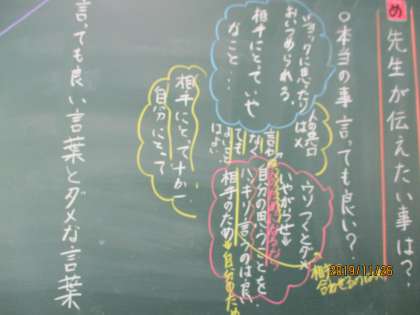 め
先生が伝えたい事は?
○本当の事言っても良い?
ショックに思ったり
おいつめられる
相手にとっていや
なこと・・・
人の悪口
はメ
ウソつくとダメ
いやがらせ
自分の思うことを
ハッキリ言うのは良
相手のため
自分のため
相手にとって
自分にとって
言っても良い言葉とダメな言葉
2019/11/26